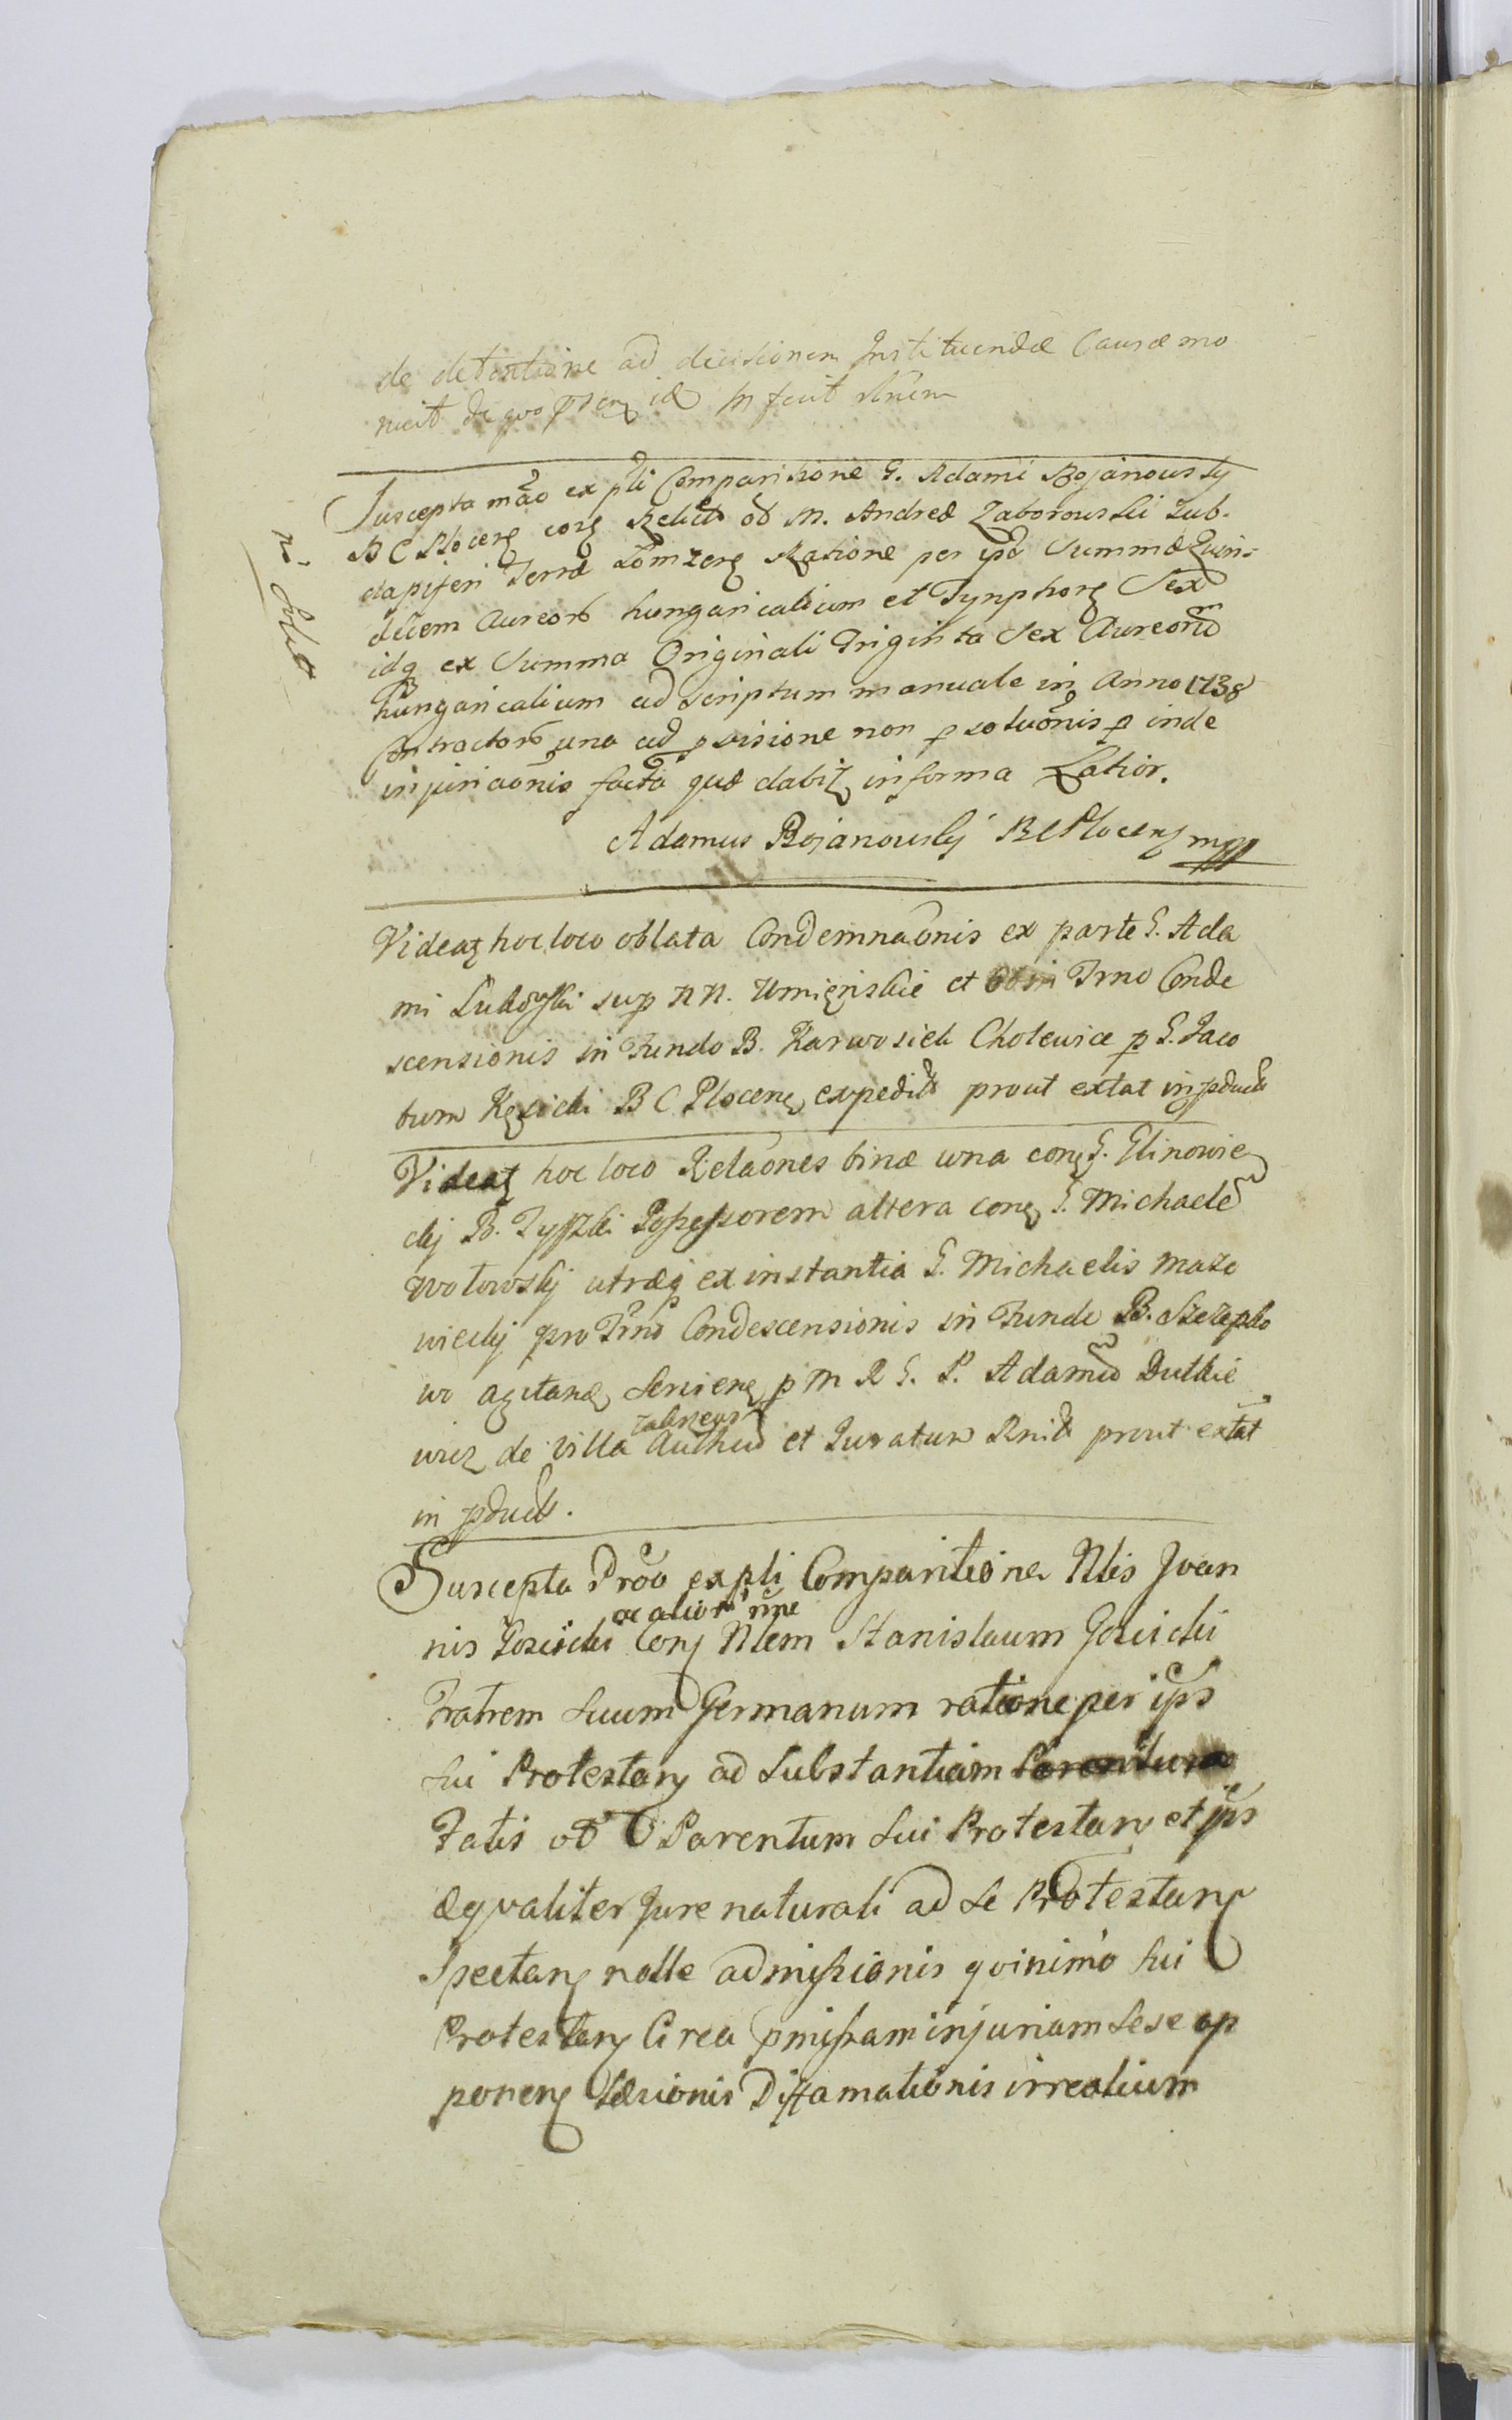 de detentione ad decisionem Instituendæ Causæ mo
nuit de quo in fecit
Suscepta mão ex pti Comparitione G. Adami Bojanowsky
B C Plocen con Relict ol M. Andreæ Zaborowski Sub-
dapiferi Terræ Lomzen Ratione per ipã Summæ Quin-
decem Aureor hungaricalium et Tynphon Sex
idq ex Summa Originali Triginta Sex Aureorũ
hungaricalium ad scriptum manuale in Anno 1738
Contractor una cũ pvisione non psolutõnis p inde
injuriaõnis facta quæ dabit in forma Latior.
Adamus Bojanowsky B C Plocen mpp
Videat hoc loco oblata Condemnaõnis ex parte G. Ada
mi Lukowski sup N N. Umięnskie et Trno Conde
scensionis in Fundo B. Karwosieki Cholewice p G. Jaco
bum Kęsicki B C Plocen expedit prout extat in pduct
Videat hoc loco Relaões binæ una con G. Glinowie
cky B. Possessorem altera con G. Michaelẽ
Wołowsky utræq ex instantia G. Michaelis Mazo
wiecky pro Trno Condescensionis in Fundo B. Szczepko
wo agitand Servien p M R G. P. Adamũ Dutkie
wicz de villa Authen et Juratum Rnit prout extat
in pduct.
Suscepta Prõa ex pti Comparitione Nlis Joan
nis Gosicki Con Nlem Stanislaum Gosicki
ac alior nne
Fratrem suum Germanum ratione per ips
sui Protestan ad Substantiam Parentum
Fatis ol Parentum sui Protestan et ips
æqvaliter Jure naturali ad se Protestan
Spectan nolle admissionis qvinimo sui
Protestan Circa pmissam injuriam sese op
ponen læsionis Diffamationis irrealium